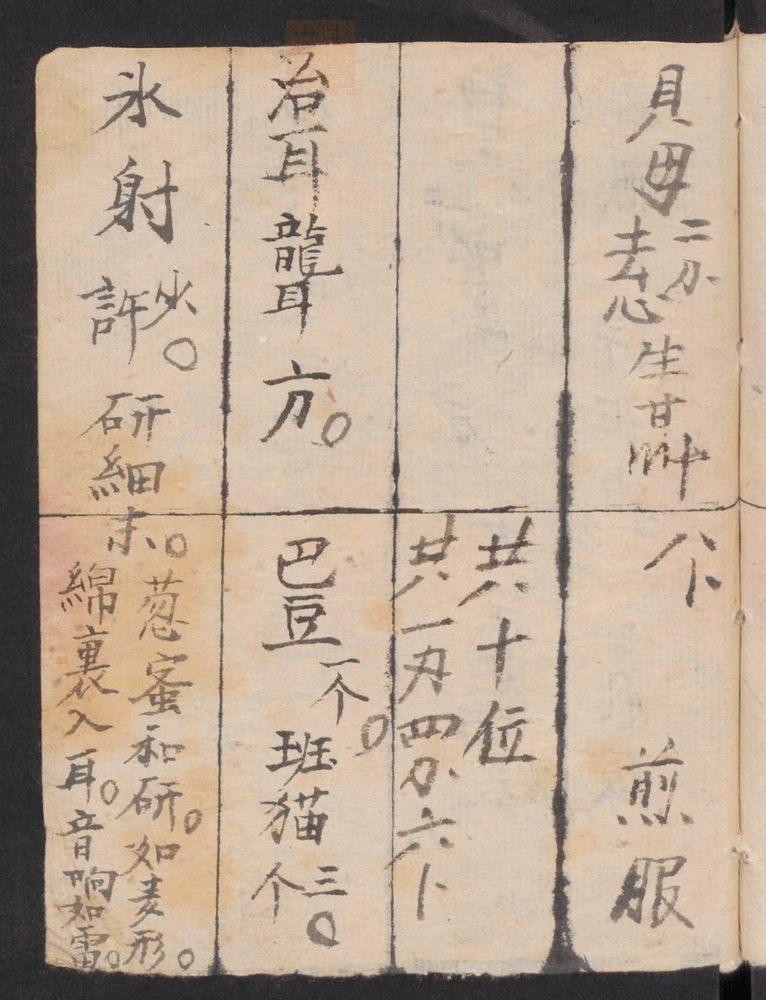 貝毋二分去心生甘艸
个
煎服
共十位
共一刄四分六卜
治耳聾方。
巴豆一个。班猫三个。
氷射少許。研細末。
葱蜜和研。如麦形。
綿裏入耳。音响如雷。